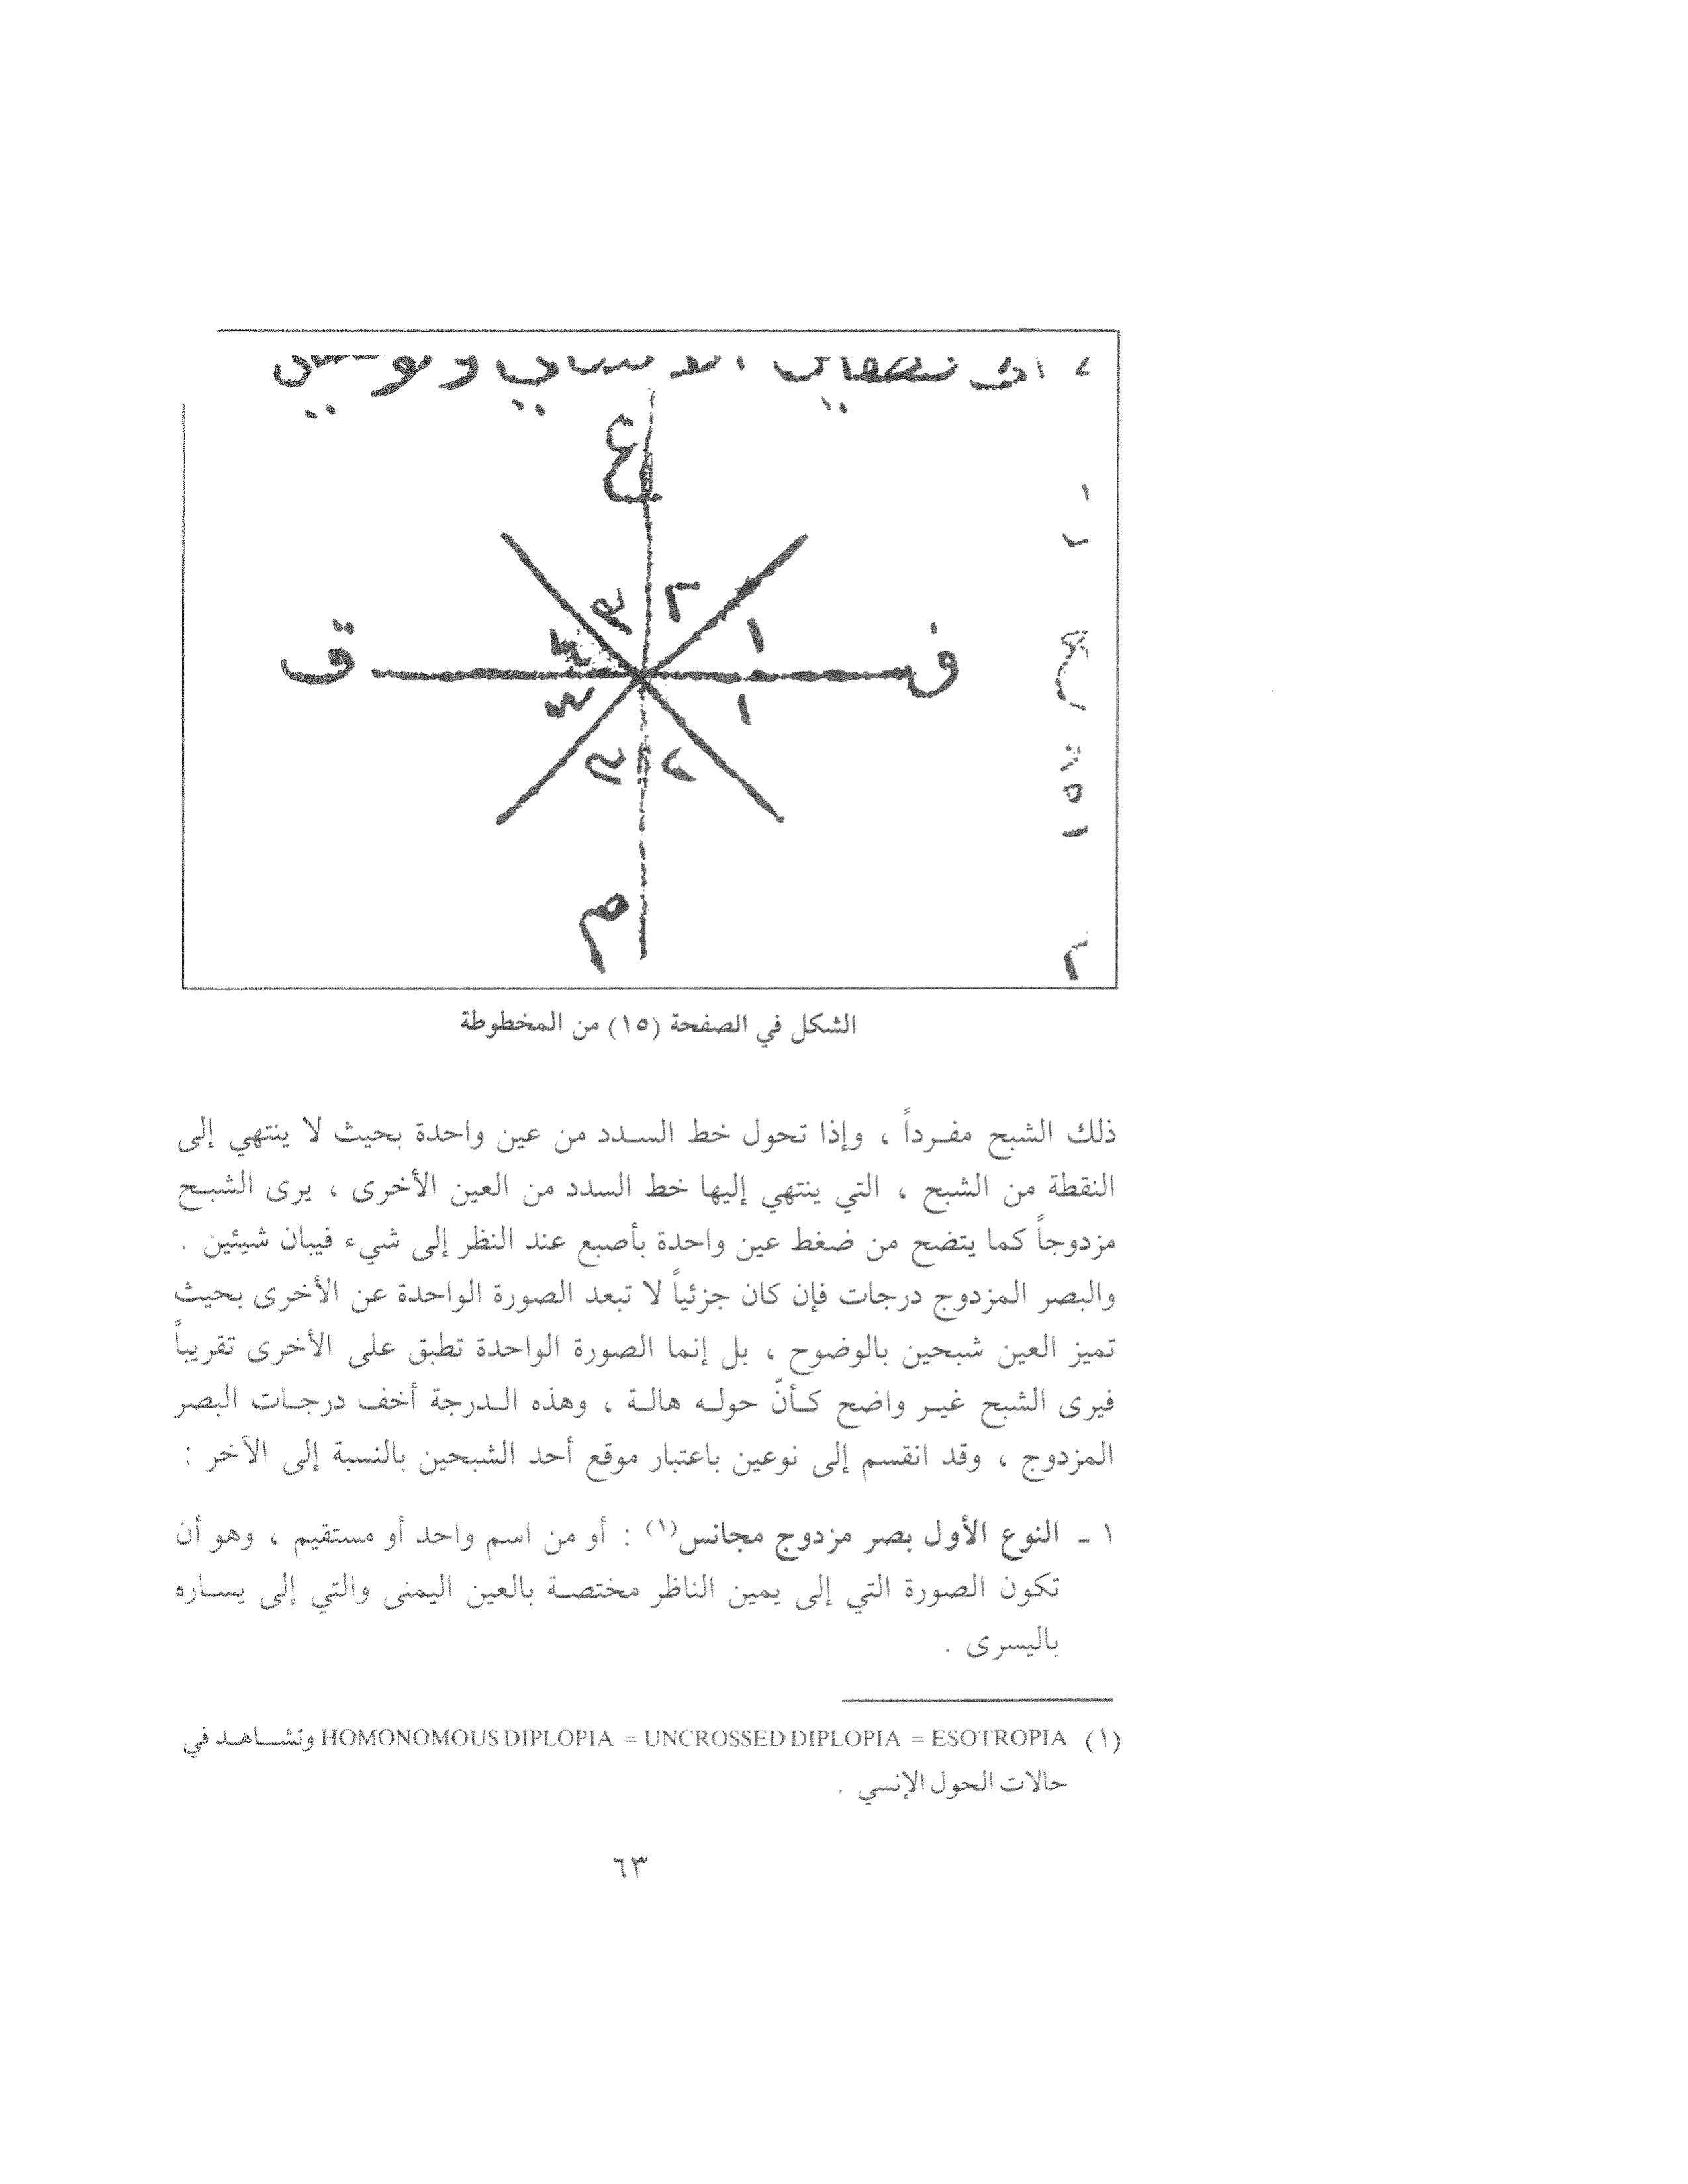 ع
٣ ٢
٤ ١
ق ف
٤ ١
٣ ٢
م
الشكل في الصفحة (١٥) من المخطوطة
ذلك الشبح مفرداً ، وإذا تحول خط السدد من عين واحدة بحيث لا ينتهي إلى
النقطة من الشبح ، التي ينتهي إليها خط السدد من العين الأخرى ، يرى الشبح
مزدوجاً كما يتضح من ضغط عين واحدة بأصبع عند النظر إلى شيء فيبان شيئين .
والبصر المزدوج درجات فإن كان جزئياً لا تبعد الصورة الواحدة عن الأخرى بحيث
تميز العين شبحين بالوضوح ، بل إنما الصورة الواحدة تطبق على الأخرى تقريباً
فيرى الشبح غير واضح كأنّ حوله هالة ، وهذه الدرجة أخف درجات البصر
المزدوج ، وقد انقسم إلى نوعين باعتبار موقع أحد الشبحين بالنسبة إلى الآخر :
١ ـ النوع الأول بصر مزدوج مجانس(١) : أو من اسم واحد أو مستقيم ، وهو أن
تكون الصورة التي إلى يمين الناظر مختصة بالعين اليمنى والتي إلى يساره
باليسرى .
(١) HOMONOMOUS DIPLOPIA = UNCROSSED DIPLOPIA = ESOTROPIA وتشاهد في
حالات الحول الإنسي .
٦٣